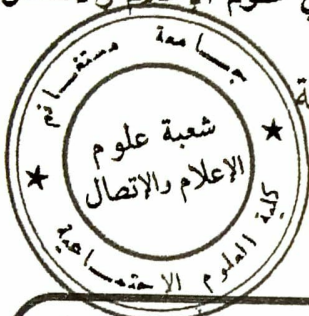 علوم الإعلام و
جامعة مستغانم
شعبة علوم
الإعلام والاتصال
كلية العلوم الاجتماعية